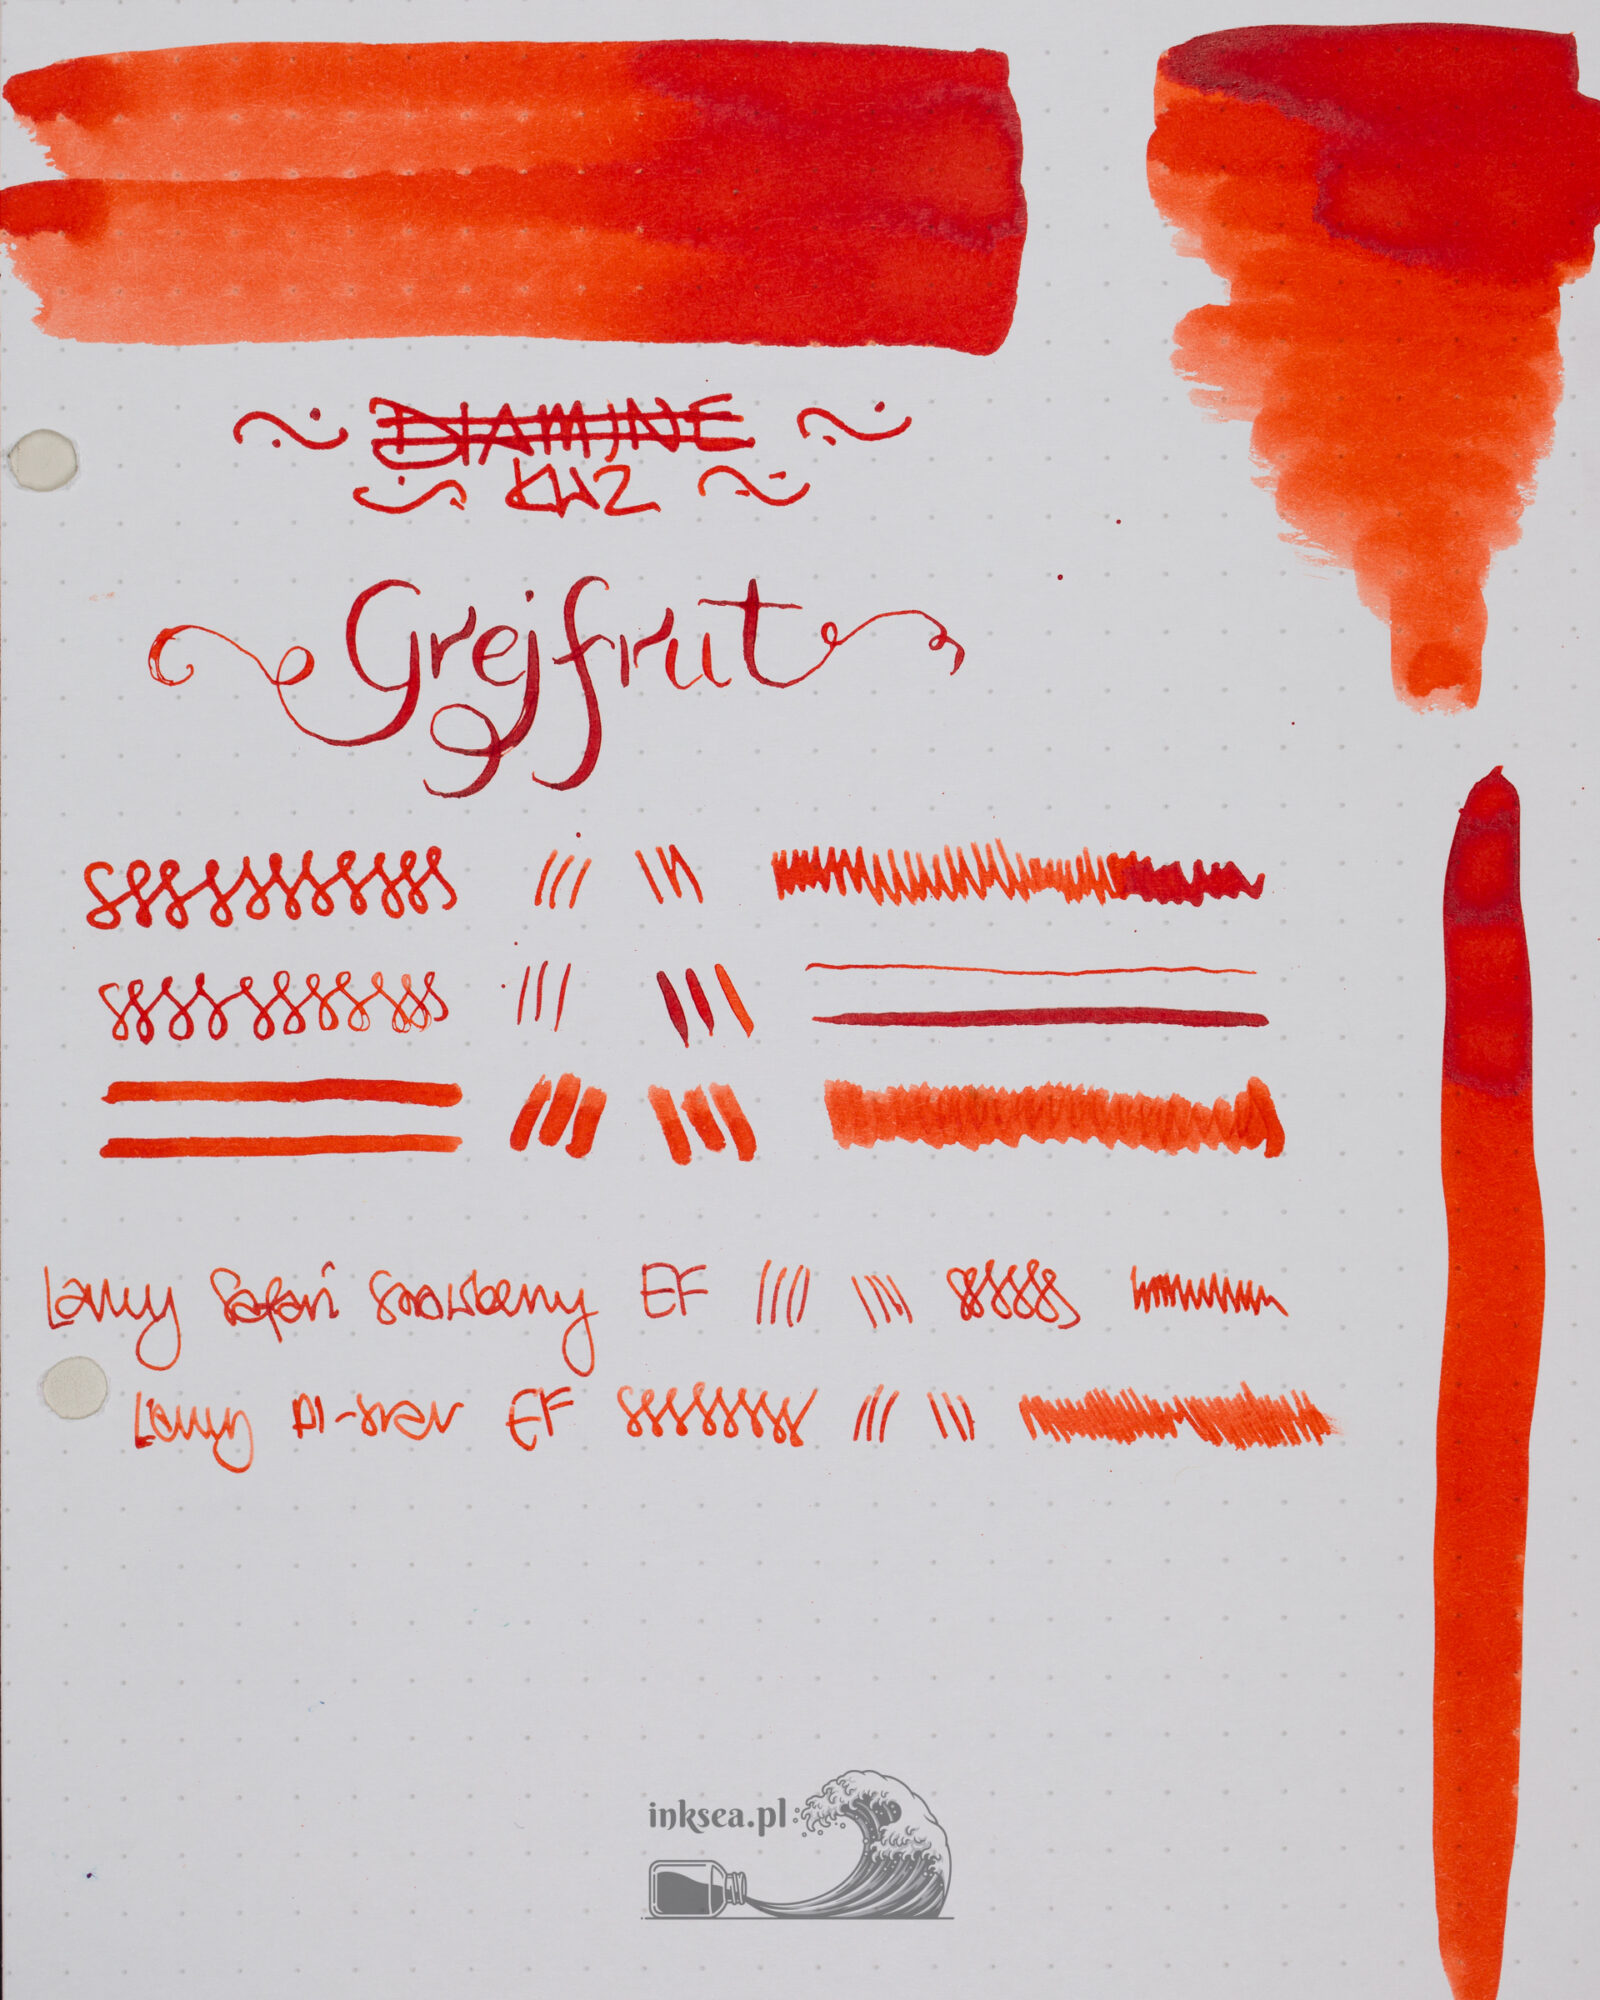 DIAMINE
KWZ
Grejfrut
Lamy Safari Strawberry EF
Lamy Al-star EF
inksea.pl